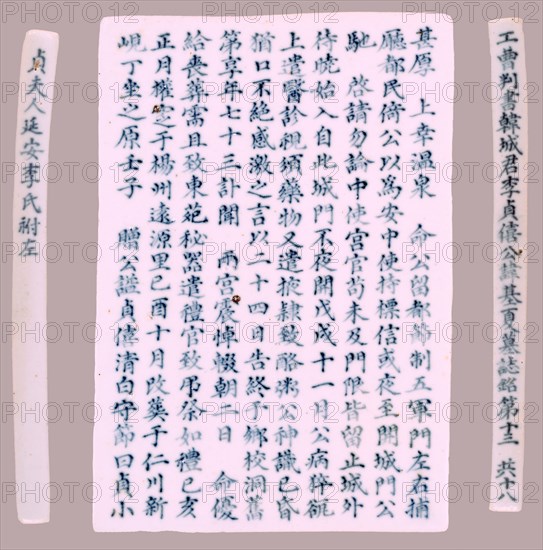 工曹判書韓城君李貞僖公諱基夏墓誌銘 第十三 共十八
甚厚 上幸溫泉 命公留都節制五軍門左右捕
廳都民倚公以爲安中使持標信或夜至開城門公
馳 啓請勿論中使宮官苟未及門限皆留止城外
待曉始入自此城門不夜開戊戌十一月公病猝
上遣醫診視頒藥物又遣掖隷致酪粥公神識已昏
猶口不絶感激之言以二十四日告終于鄕校洞舊
第享年七十三訃聞 兩宮震悼輟朝二日 命優
給喪葬需且致東苑秘器遣禮官致弔祭如禮己亥
正月權窆于楊州遠源里己酉十月改葬于仁川新
峴丁坐之原壬子 贈公諡貞僖清白守節曰貞小
貞夫人延安李氏祔左